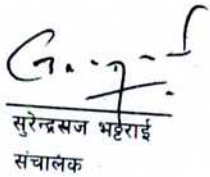 सुरेन्द्रसज भट्टराई
संचालक